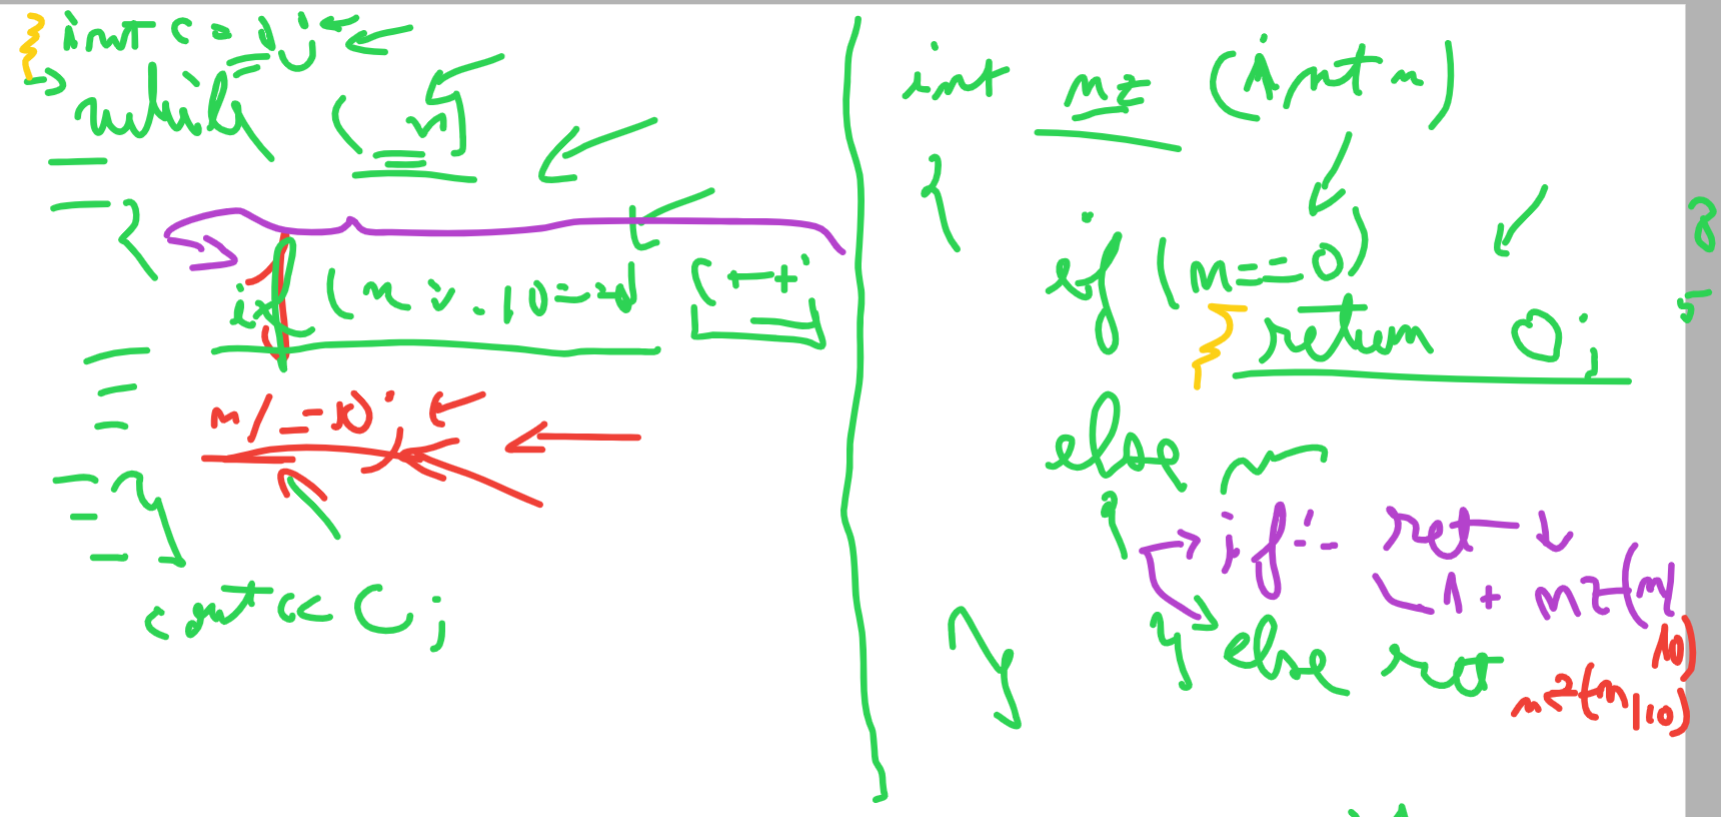 int c = 0;
while (n)
{
if (n % 10 == d) c++;
n/=10;
}
cout << c;
int nz (int n)
{
if (n==0)
return 0;
else
{
if :- ret
1 + nz(n/10)
} else ret
nz(n/10)
}
8
5